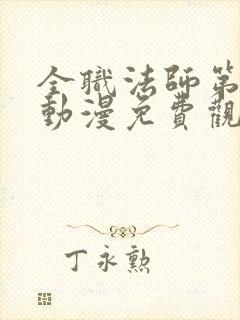 全職法師第
動漫免費觀
丁永勲